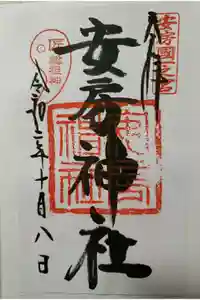 安房國一之宮
奉拝
安房神社
令和二年十月八日
安房神社